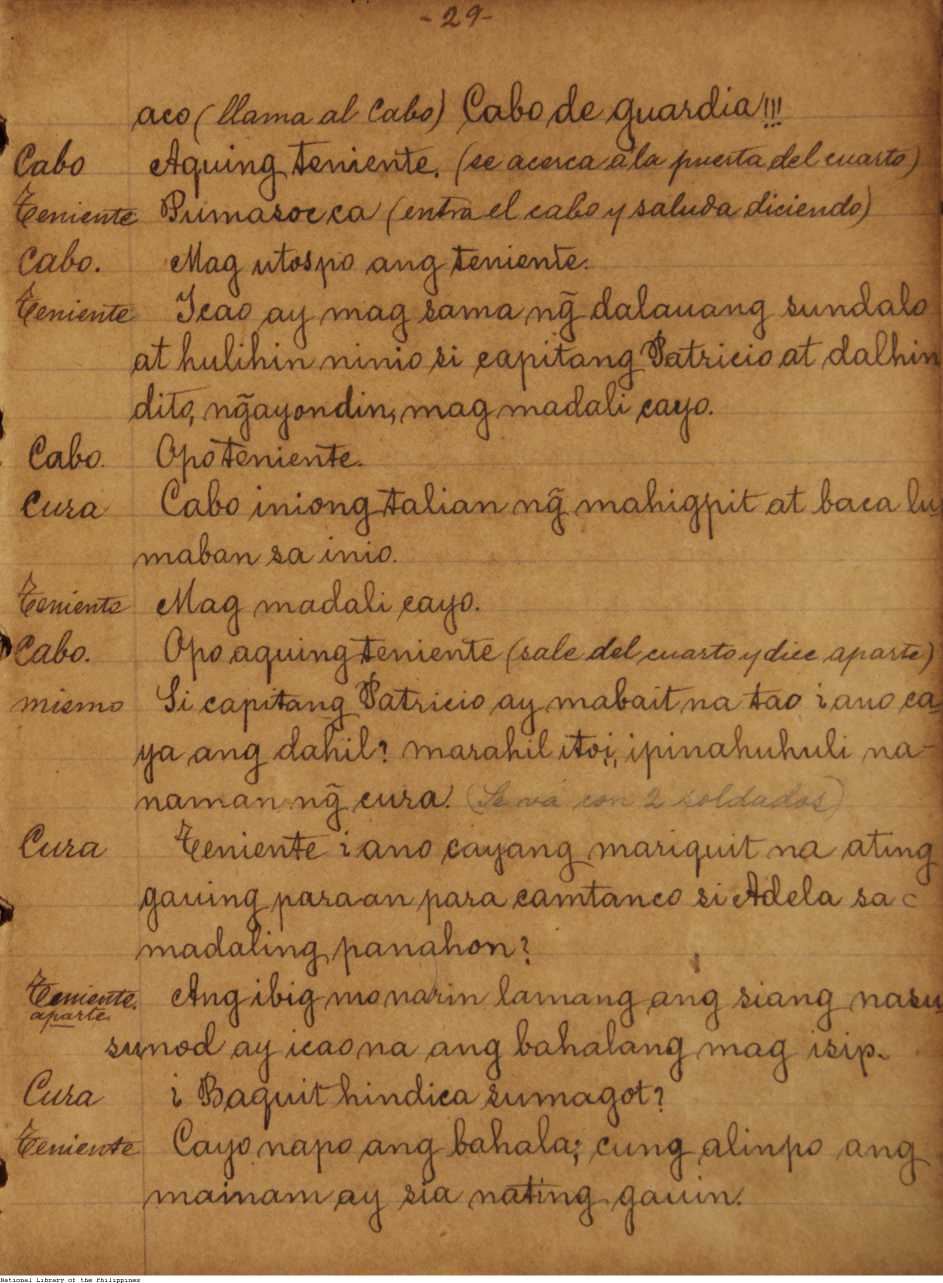 -29-
aco (llama al Cabo) Cabo de guardia!!!
Cabo Aquing teniente. (se acerca a la puerta del cuarto)
Teniente Pumasoc ca (entra el cabo y saluda diciendo)
Cabo. Mag utos po ang teniente.
Teniente Icao ay mag sama ng̃ dalauang sundalo
at hulihin ninio si capitang Patricio at dalhin
dito, ng̃ayondin, mag madali cayo.
Cabo. Opo teniente.
Cura Cabo iniong talian ng̃ mahigpit at baca lu-
maban sa inio.
Teniente Mag madali cayo.
Cabo. Opo aquing teniente (sale del cuarto y dice aparte)
mismo Si capitang Patricio ay mabait na tao ¿ano ca-
ya ang dahil? marahil itoi, ipinahuhuli na-
naman ng̃ cura. (Se va con 2 soldados)
Cura Teniente ¿ano cayang mariquit na ating
gauing paraan para camtanco si Adela sa
madaling panahon?
Teniente. Ang ibig mo narin lamang ang siang nasu-
aparte.
sunod ay icao na ang bahalang mag isip.
Cura ¿Baquit hindica sumagot?
Teniente Cayo napo ang bahala; cung alinpo ang
mainam ay sia nating gauin.
National Library of the Philippines